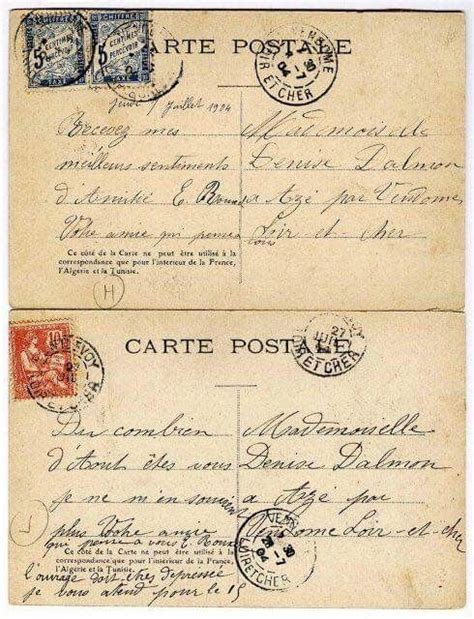 CHIFFRE
5 CENTIMES
A PERCEVOIR
TAXE
CHIFFRE
5 CENTIMES
A PERCEVOIR
TAXE
CARTE POSTALE
VENDOME
LOIR ET CHER
Jeudi 7 Juillet 1904
Recevez mes
meilleurs sentiments
d'Amitié E.
Votre amie qui pense à
vous
Ce côté de la Carte ne peut être utilisé à la
correspondance que pour l'intérieur de la France,
l'Algérie et la Tunisie.
H
Mademoiselle
Denise Dalmon
à Azé par Vendome
Loir-et-cher
10
LOIR ET CHER
CARTE POSTALE
27
JUIL
LOIR ET CHER
Du combien
d'Aout êtes vous
je ne m'en souviens
plus Votre amie
qui pense à vous E.
Ce côté de la Carte ne peut être utilisé à la
correspondance que pour l'intérieur de la France,
l'Algérie et la Tunisie.
l'ouvrage doit
je vous attend pour le 15
L
Mademoiselle
Denise Dalmon
à Azé par
Vendome Loir-et-cher
LOIR ET CHER